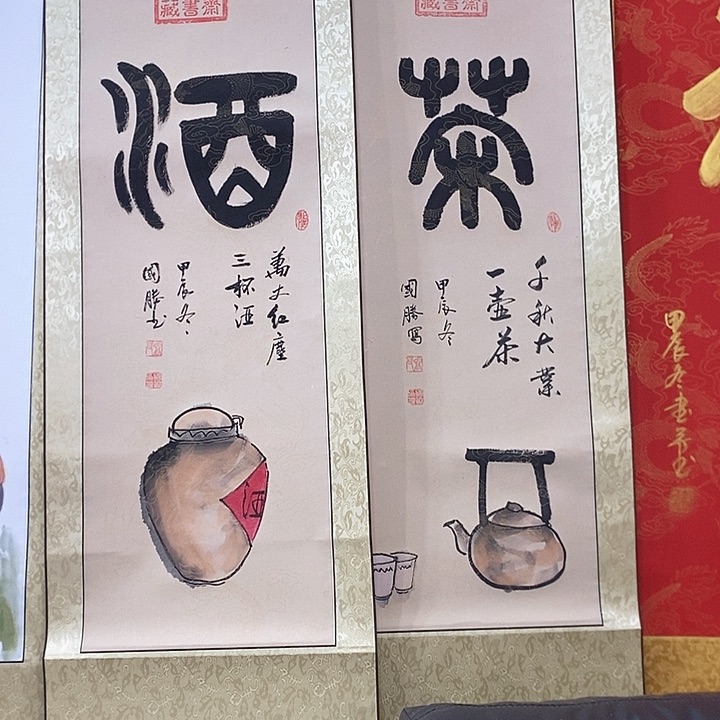 藏書齋
茶
千秋大業
一壺茶
甲辰冬
國勝寫
藏書齋
酒
萬丈红塵
三杯酒
甲辰冬
國勝书
酒
甲辰冬